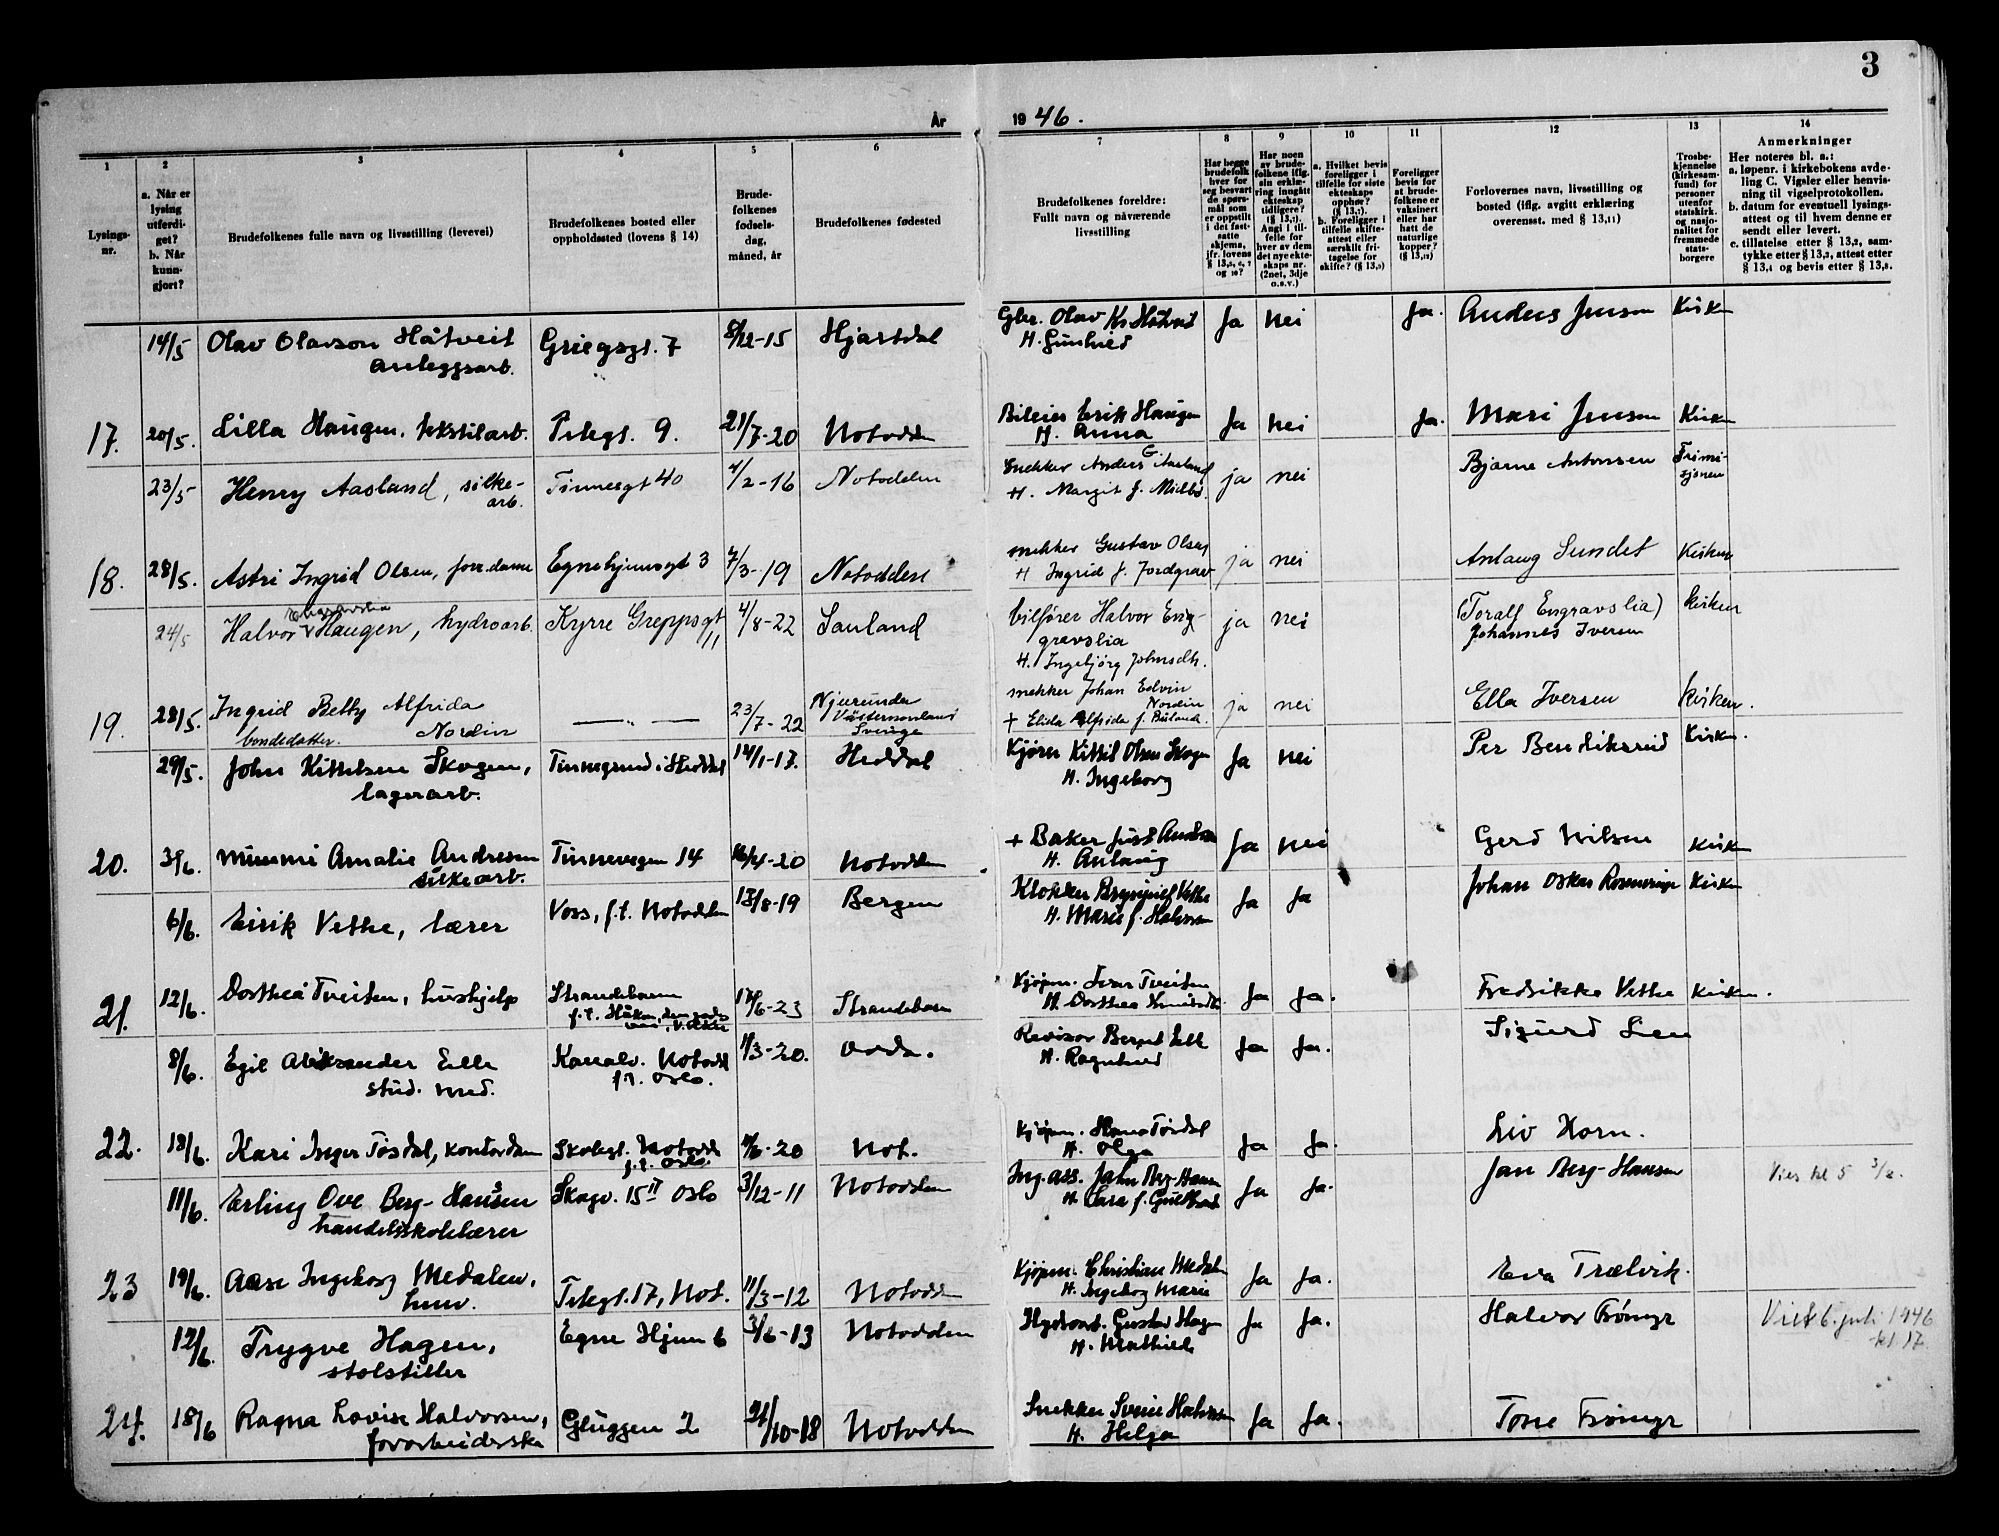 3
År 1946.
1
2
3
4
5
6
7
8
9
10
11
12
13
14
Lysings-
nr.
a. Når er
lysing
utferdi-
get?
b. Når
kunn-
gjort?
Brudefolkenes fulle navn og livsstilling (levevei)
Brudefolkenes bosted eller
oppholdssted (lovens § 14)
Brude-
folkenes
fødsels-
dag,
måned, år
Brudefolkenes fødested
Brudefolkenes foreldre:
Fullt navn og nåværende
livsstilling
Har begge
brudefolk
hver for
seg besvart
de spørs-
mål som
er oppstilt
i det fast-
satte
skjema,
jfr. lovens
Har noen
av brude-
folkene iflg.
sin erklæ-
ring inngått
ekteskap
tidligere?
(§ 13,7).
Angi i til-
felle for
hver av dem
det nye ekte-
skaps nr.
(2net, 3dje
o.s.v.)
a. Hvilket bevis
foreligger i
tilfelle for siste
ekteskaps
opphør?
(§ 13,7).
b. Foreligger i
tilfelle skifte-
attest eller
særskilt fri-
tagelse for
skifte? (§ 13,9)
Foreligger
bevis for
at brude-
folkene er
vaksinert
eller har
hatt de
naturlige
kopper?
(§ 13,12)
Forlovernes navn, livsstilling og
bosted (iflg. avgitt erklæring
overensst. med § 13,11)
Trosbe-
kjennelse
(kirkesam-
fund) for
personer
utenfor
statskirk.
og nasjo-
nalitet for
fremmede
stats-
borgere
Anmerkninger
Her noteres bl. a.:
a. løpenr. i kirkebokens avde-
ling C. Vigsler eller henvis-
ning til vigselprotokollen.
b. datum for eventuell lysings-
attest og til hvem denne er
sendt eller levert.
c. tillatelse etter § 13,2, sam-
tykke etter § 13,3, attest etter
§ 13,4 og bevis etter § 13,8.
14/5 Olav Olavson Håtveit Griegsgt. 7 8/12-15 Hjartdal Gbr. Olav Kr Håtveit Ja nei Ja. Anders Jenson Kirken
anleggsarb. H. Gunhild
17. 20/5. Lilla Haugen, tekstilarb. Telegt. 9. 21/7-20 Notodden Bileier Erik Haugen Ja nei Ja. Mari Jenson Kirken
H. Anna
23/5 Henry Aasland, silke- Tinnesgt 40 4/2-16 Notodden Snekker Anders G. Aasland ja nei Bjarne Antonsen Frimi-
arb. H. Margit f. Midbö. sjonen
18. 28/5. Astri Ingrid Olsen, forr.dame Egnehjemsgt 3 7/3-19 Notodden snekker Gustav Olsen ja nei Anlaug Sundet Kirken
H Ingrid f. Jordgrav
24/5 Halvor Haugen, hydroarb. Kyrre Greppsgt 4/8-22 Sauland bilfører Halvor Eng- ja nei (Toralf Engravslia) kirken
11 gravslia Johannes Iversen
H. Ingebjörg Johnsdtr.
19. 28/5. Ingrid Betty Alfrida 23/7-22 Njurunda snekker Johan Edvin ja nei Ella Iversen kirken.
Nordin Västernorrland Nordin
bondedatter. Sverige + Elida Alfrida f.
29/5. John Kittelsen Skogen, Tinnegrend i Heddal 14/1-17. Heddal Kjører Kittil Olsen Skogen Ja nei Per Bendiksrud Kirken.
lagerarb. H. Ingeborg
20. 3/6. Mimmi Amalie Andresen Tinnevegen 14 16/4-20 Notodden + Baker Just Andresen Ja nei Gerd Nilsen Kirken
silkearb. H. Anlaug
6/6. Eirik Vethe, lærer Voss, f.t. Notodden 15/8-19 Bergen Klokker Brynjulf Vethe Ja Ja Johan Oskar Kirken
H. Marie f. Halvorsen
21. 12/6. Dorthea Tveiten, hushjelp Strandebarm 17/6-23 Strandebarm Kjøpm. Ivar Tveiten Ja Ja. Fredrikke Vethe Kirken.
f.t. Håkon den godes H. Dorthea
8/6. Egil Aleksander Kanalv. Notodd 11/3-20. Odda. Revisor Ja Ja. Sigurd Lien
stud. med. f.t. Oslo. H. Ragnhild
22. 18/6. Kari Inger Tosdal, kontordam Skolegt. Notodd 11/6-20 Not. Kjøpm. Hans Tosdal Ja Ja. Liv Horn.
f.t. Oslo. H. Olga
11/6. Erling Ove Berg-Hansen Skogv. 15 II Oslo 3/12-11 Notodden Ing.ass. John Berg-Hansen Ja Ja. Jan Berg-Hansen Vies kl 5
handelsskolelærer H. Clara f.
23 19/6. Aase Ingeborg Medalen, Telegt. 17, Not. 11/3-12 Notodden Kjøpm. Christian Medalen Ja Ja. Eva Trælvik.
H. Ingeborg Marie
12/6. Trygve Hagen, Egne Hjem 6 3/6-13 Notodden Hydroarb. Gustav Hagen Ja Ja. Halvor Trömyr Viet 6. juli 1946
stolstiller H. Mathilde kl. 17.
24. 18/6 Ragna Lovise Halvorsen, Gluggen 2 21/10-18 Notodden Snekker Svein Halvorsen Ja Ja. Tone Trömyr
H. Helga